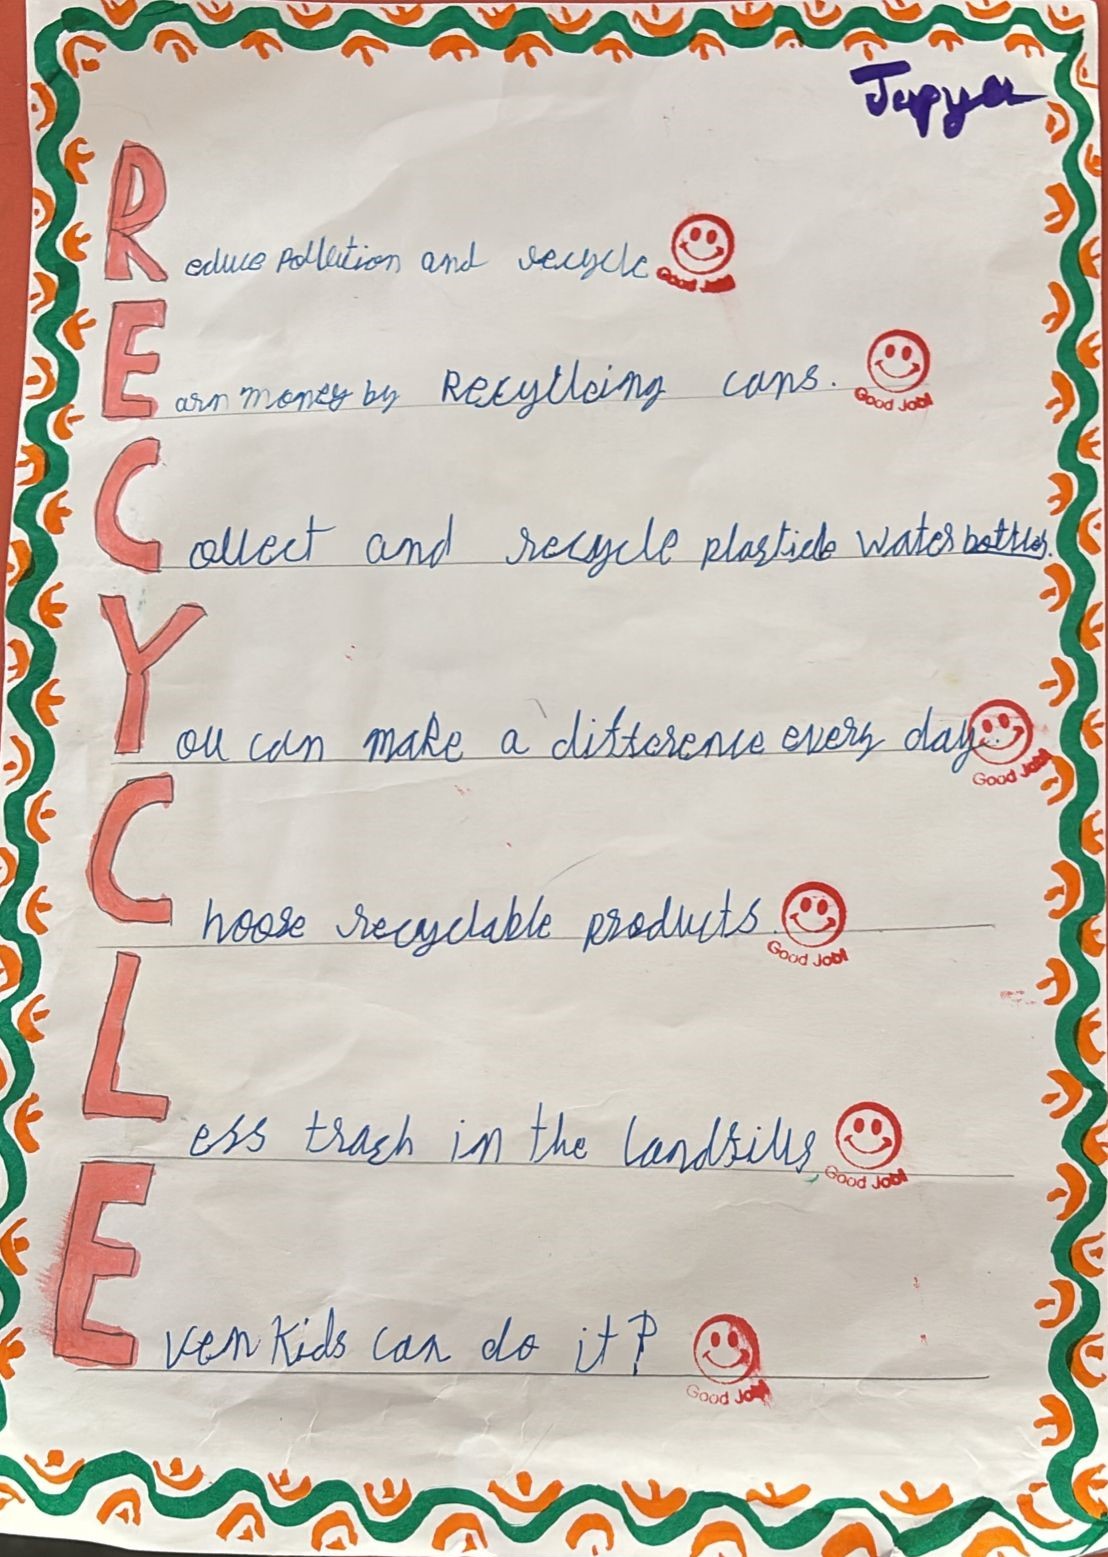 Jupyer
Reduce pollution and recycle
Good Job!
Earn money by Recytleing cans.
Good Job!
Collect and recycle plasticle water bottles.
You can make a difference every day.
Good Job!
Choose recyclable products.
Good Job!
Less trash in the landfills
Good Job!
Even Kids can do it?
Good Job!